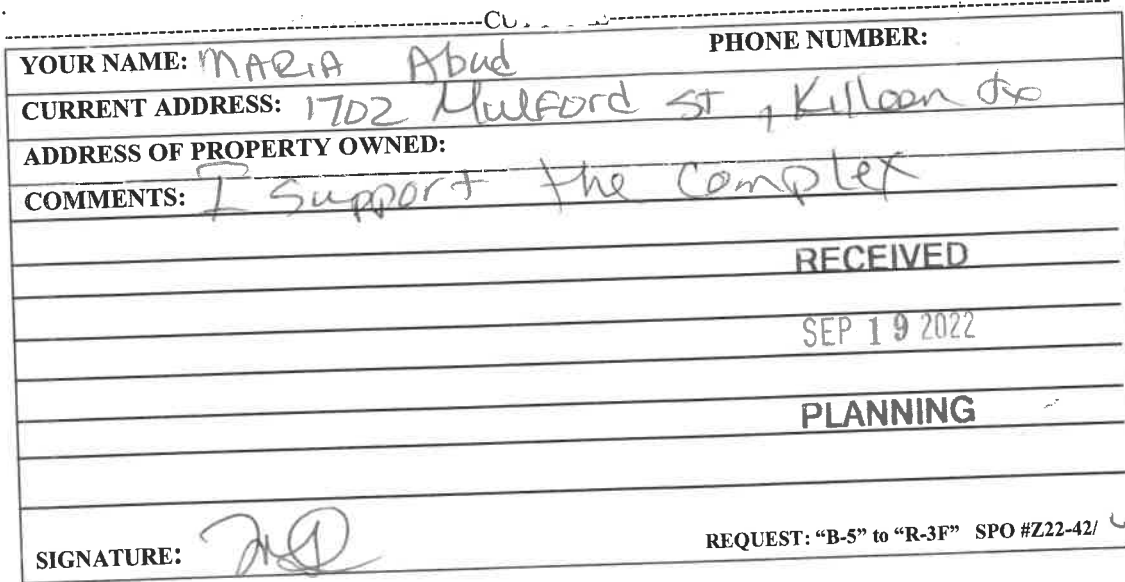 YOUR NAME: MARIA Abud PHONE NUMBER:
CURRENT ADDRESS: 1702 Mulford ST, Killeen tx
ADDRESS OF PROPERTY OWNED:
COMMENTS: I Support the Complex
RECEIVED
SEP 19 2022
PLANNING
SIGNATURE: REQUEST: “B-5” to “R-3F” SPO #Z22-42/